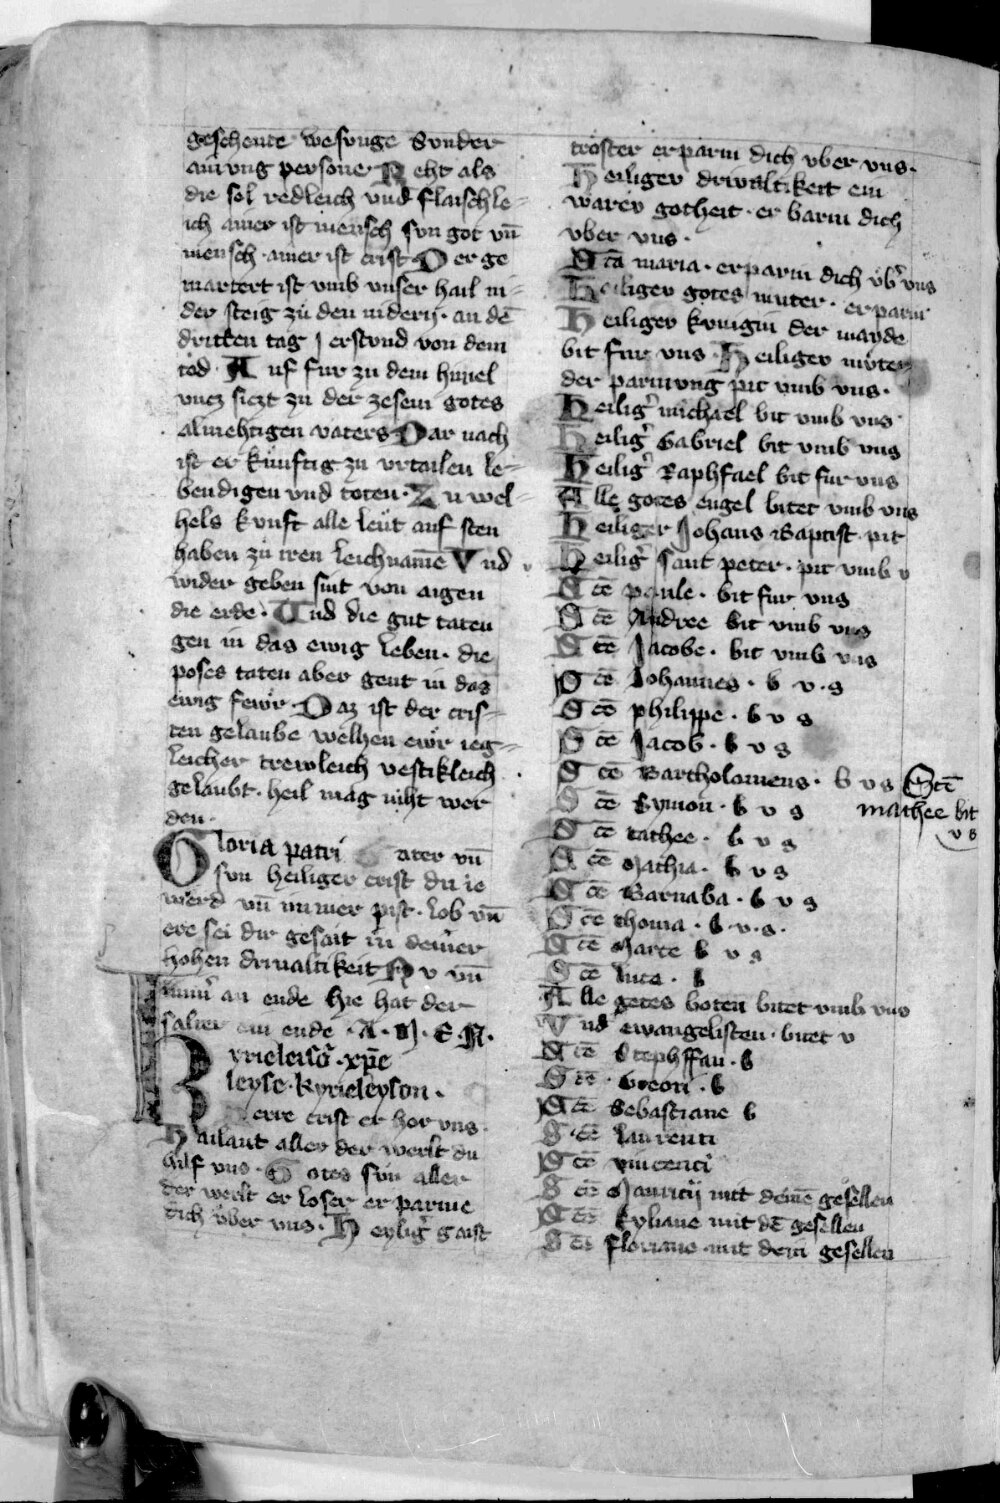 geschente wesunge Sunder
ainung persone Reht als
die sel redleich vnd flaischle=
ich ainer ist mensch sun got vn̄
mensch ainer ist crist Der ge
martert ist vmb vnser hail ni=
der steig zu den nidern · an dē
dritten tag erstund von dem
tod · Auf fur zu dem himel
vncz siczt zu der zesem gotes
almehtigen vaters Dar nach
ist er kunftig zu vrtailen le=
bendigen vnd toten · Zu wel=
hels kunft alle leut auf sten
haben zu iren leichnamē Vnd
wider geben sint von aigen
die erde · Vnd die gut taten
gen in das ewig leben · die
poses taten aber gent in das
ewig fewr · Daz ist der cris=
ten gelaube welhen ewr ieg=
leicher trewleich vestikleich
gelaubt · heil mag niht wer
den ·
Gloria patri ater vn̄
sun heiliger crist du ie
werd vn̄ immer pist · lob vn̄
ere sei dir gesait in deiner
hohen driualtikeit Nu vn̄
an ende hie hat der
salter ein ende · A · M · E · N ·
Kyrieleisō · xp̄e
leyse · kyrieleyson ·
erre crist er hor vns
Hailant aller der werlt du
hilf vns · Gotes sun aller
der werlt er loser er parme
dich vber vns · Heylig̓ gaist
troster erparm dich vber vns ·
Heiliger driualtikeit ein
warev gotheit · er barm dich
vber vns ·
Scā maria · erparm dich vb̓ vns
Heiligev gotes muter · erparm
Heiligev kunigin der mayde
bit fur vns · Heiligev muter
der parmung pit vmb vns ·
Heilig̓ michael bit vmb vns
Heilig̓ Gabriel bit vmb vns
Heilig̓ Raphfael bit fur vns
Alle gotes engel bitet vmb vns
Heiliger Johans Baptist pit
Heilig̓ sant peter · pit vmb v
Scē paule · bit fur vns
Scē Andree bit vmb vns
Scē Jacobe · bit vmb vns
Scē Johannes · b v · s
Scē philippe · b v s
Scē Jacob · b v s
Scē Bartholomeus · b v s Sctē
mathee bit
v s
Scē Symon · b v s
Scē tathee · b v s
Scē Mathia · b v s
Scē Barnaba · b v s
Scē thoma · b · v · s ·
Scē Marce b v s
Scē luca · b
Alle gotes boten bitet vmb vns
Vnd ewangelisten · bitet v
Scē Stephffan · b
Scē · Georii · b
Scē Sebastiane b
Scē laurenti
Scē vincenti
Scē Mauricij mit deinē gesellen
Scē kyliane mit dē gesellen
Scē floriane mit dein gesellen